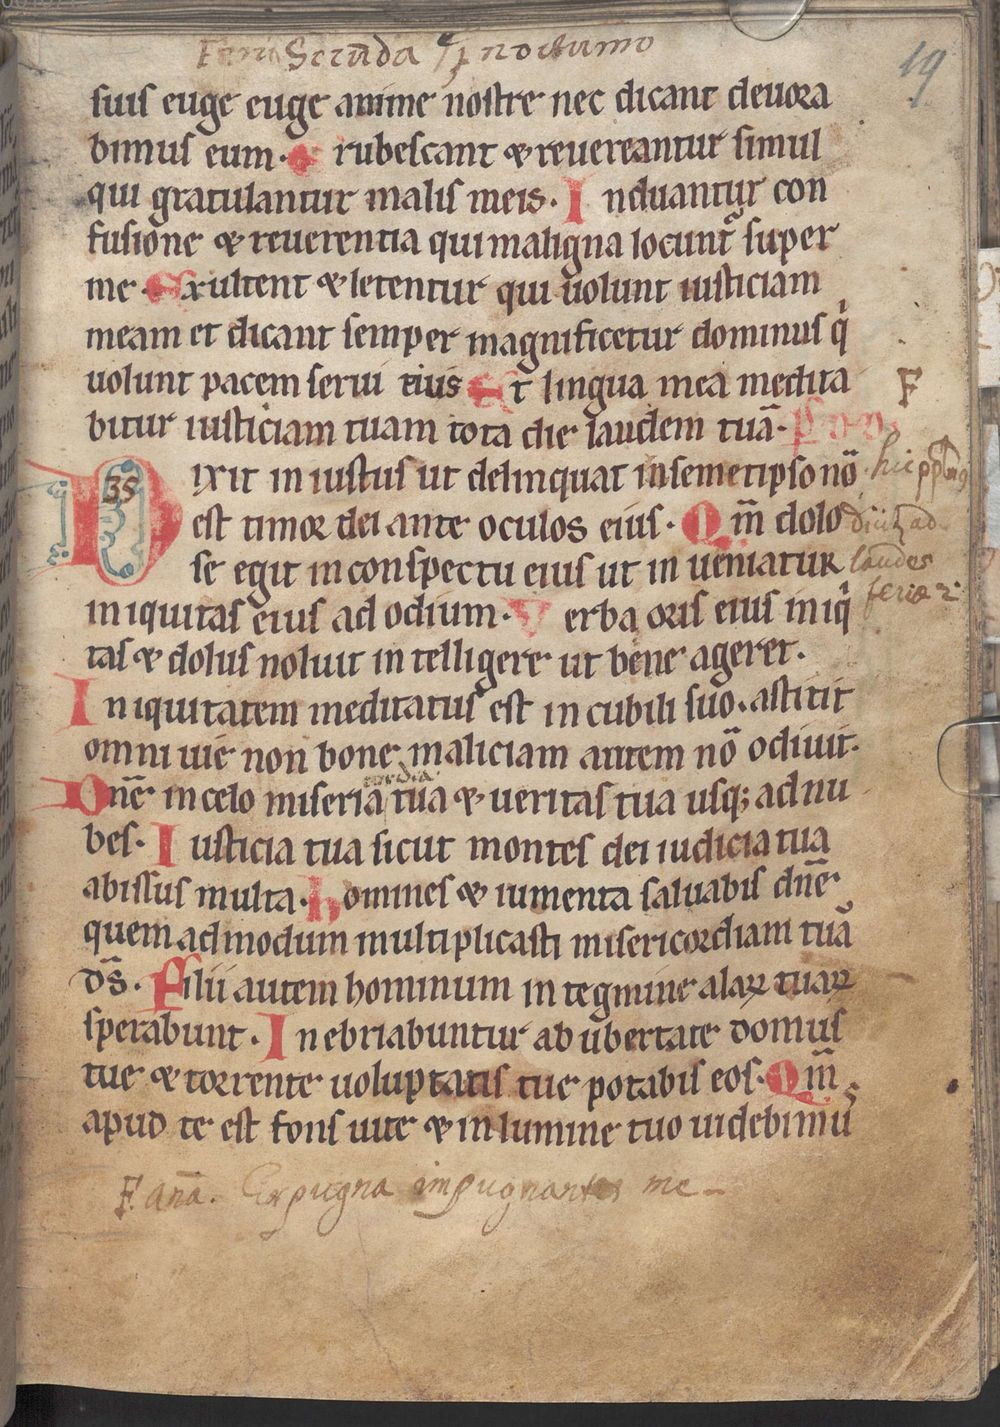 Feria Secunda In nocturno
19
suis euge euge anime nostre nec dicant deuora
bimus eum. Erubescant & reuereantur simul
qui gratulantur malis meis. Induantur con
fusione & reuerentia qui maligna locunt᷑ super
me. Exultent & letentur qui uolunt iusticiam
meam et dicant semper magnificetur dominus q̍
uolunt pacem serui eius Et lingua mea medita
bitur iusticiam tuam tota die laudem tuā.
F
Dixit in iustus ut delinquat in semetipso nō
35
est timor dei ante oculos eius. Qm̄ dolo
se egit in conspectu eius ut in ueniatur
hic
ad
laudes
feriæ 2
iniquitas eius ad odium. Verba oris eius iniq̍
tas & dolus noluit in telligere ut bene ageret.
Iniquitatem meditatus est in cubili suo. astitit
omni uie non bone maliciam autem nō odiuit.
cordia
Dn̄e in celo miseria tua & ueritas tua usq; ad nu
bes. Iusticia tua sicut montes dei iudicia tua
abissus multa. homines & iumenta saluabis dn̄e
quem admodum multiplicasti misericordiam tuā
ds̄. Filii autem hominum in tegmine alaꝝ tuaꝝ
sperabunt. Inebriabuntur ab ubertate domus
tue & torrente uoluptatis tue potabis eos. Qm̄
apud te est fons uite & in lumine tuo uidebimu᷒
F. anā. Expugna impugnantes me